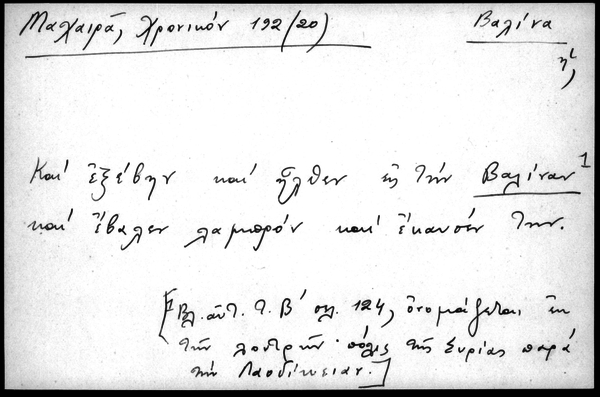 Μαχαιρᾶ, Χρονικόν 192 (20) Βαλίνα
ἡ,
Καὶ ἐξέβην καὶ ἦλθεν εἰς τὴν Βαλίναν¹
καὶ ἔβαλεν λαμπρόν καὶ ἔκαυσέν την.
[¹ Βλ. αὐτ. τ. Β΄ σελ. 124, ὀνομάζεται ἐκ
τῶν λουτρῶν · πόλις τῆς Συρίας παρά
τὴν Λαοδίκειαν.]